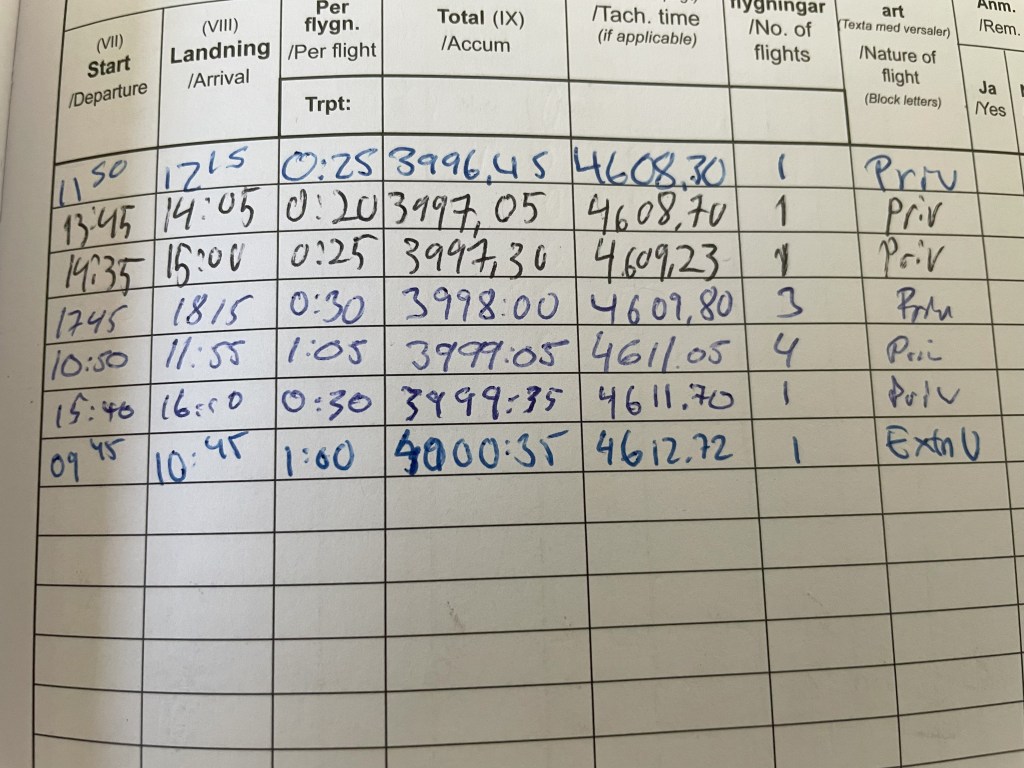 (VII) Start /Departure
(VIII) Landning /Arrival
Per flygn. /Per flight
Trpt:
Total (IX) /Accum
/Tach. time (if applicable)
flygningar /No. of flights
art (Texta med versaler) /Nature of flight (Block letters)
Anm. /Rem.
Ja /Yes
11 50 12 15 0:25 3996,45 4608,30 1 Priv
13:45 14:05 0:20 3997,05 4608,70 1 Priv
14:35 15:00 0:25 3997,30 4609,23 1 Priv
1745 1815 0:30 3998:00 4609,80 3 Priv
10:50 11:55 1:05 3999:05 4611.05 4 Priv
15:40 16:10 0:30 3999:35 4611.70 1 Priv
09 45 10:45 1:00 4000:35 4612.72 1